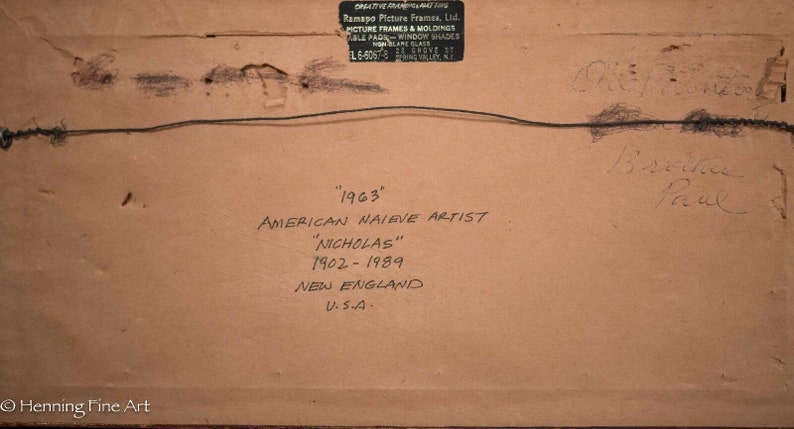 CREATIVE FRAMING & MATTING
Ramapo Picture Frames, Ltd.
PICTURE FRAMES & MOLDINGS
TABLE PADS — WINDOW SHADES
NON-GLARE GLASS
EL 6-6067-8 23 GROVE ST
SPRING VALLEY, N.Y.
Oil
Brother
Paul
"1963"
AMERICAN NAIEVE ARTIST
"NICHOLAS"
1902 - 1989
NEW ENGLAND
U.S.A.
© Henning Fine Art